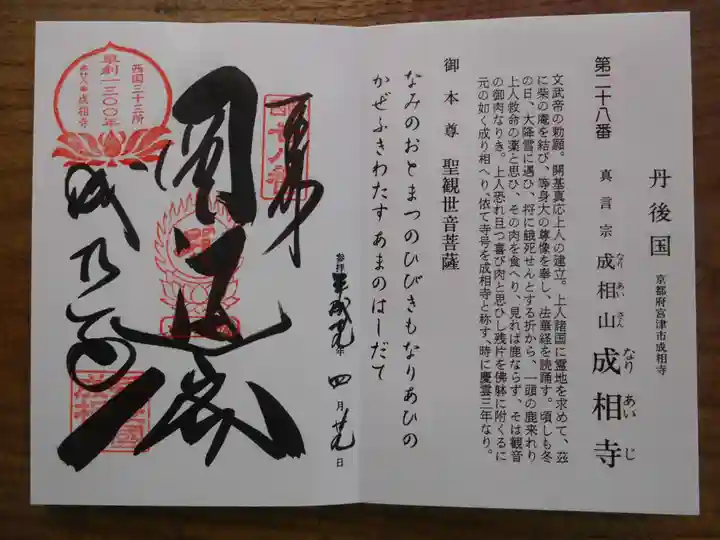 丹後国 京都府宮津市成相寺
第二十八番 真言宗 成相山 成相寺
なり あい さん なり あい じ
文武帝の勅願。開基真応上人の建立。上人諸国に霊地を求めて、茲
に柴の庵を結び、等身大の尊像を奉し、法華経を読誦す。頃しも冬
の日、大降雪に遇ひ、将に餓死せんとする折から、一頭の鹿来れり
上人救命の薬と思ひ、その肉を食へり、見れば鹿ならず、そは観音
の御肉なりき。上人恐れ且つ喜び肉と思ひし残片を佛躰に附くるに
元の如く成り相へり、依て寺号を成相寺と称す、時に慶雲三年なり。
御本尊 聖観世音菩薩
なみのおとまつのひびきもなりあひの
かぜふきわたすあまのはしだて
参拝 平成 年 四月 日
西国三十三所
草創一三〇〇年
第廿八番 成相寺